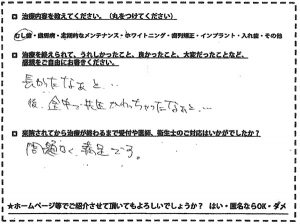 ■ 治療内容を教えてください。（丸をつけてください）
むし歯・歯周病・定期的なメンテナンス・ホワイトニング・歯列矯正・インプラント・入れ歯・その他
■ 治療を終えられて、うれしかったこと、良かったこと、大変だったことなど、
感想をご自由にお書きください。
長かったなぁと…
後、途中で先生かわっちゃったなぁと…
■ 来院されてから治療が終わるまで受付や医師、衛生士のご対応はいかがでしたか？
問題なく満足です。
★ホームページ等でご紹介させて頂いてもよろしいでしょうか？ はい・匿名ならOK・ダメ